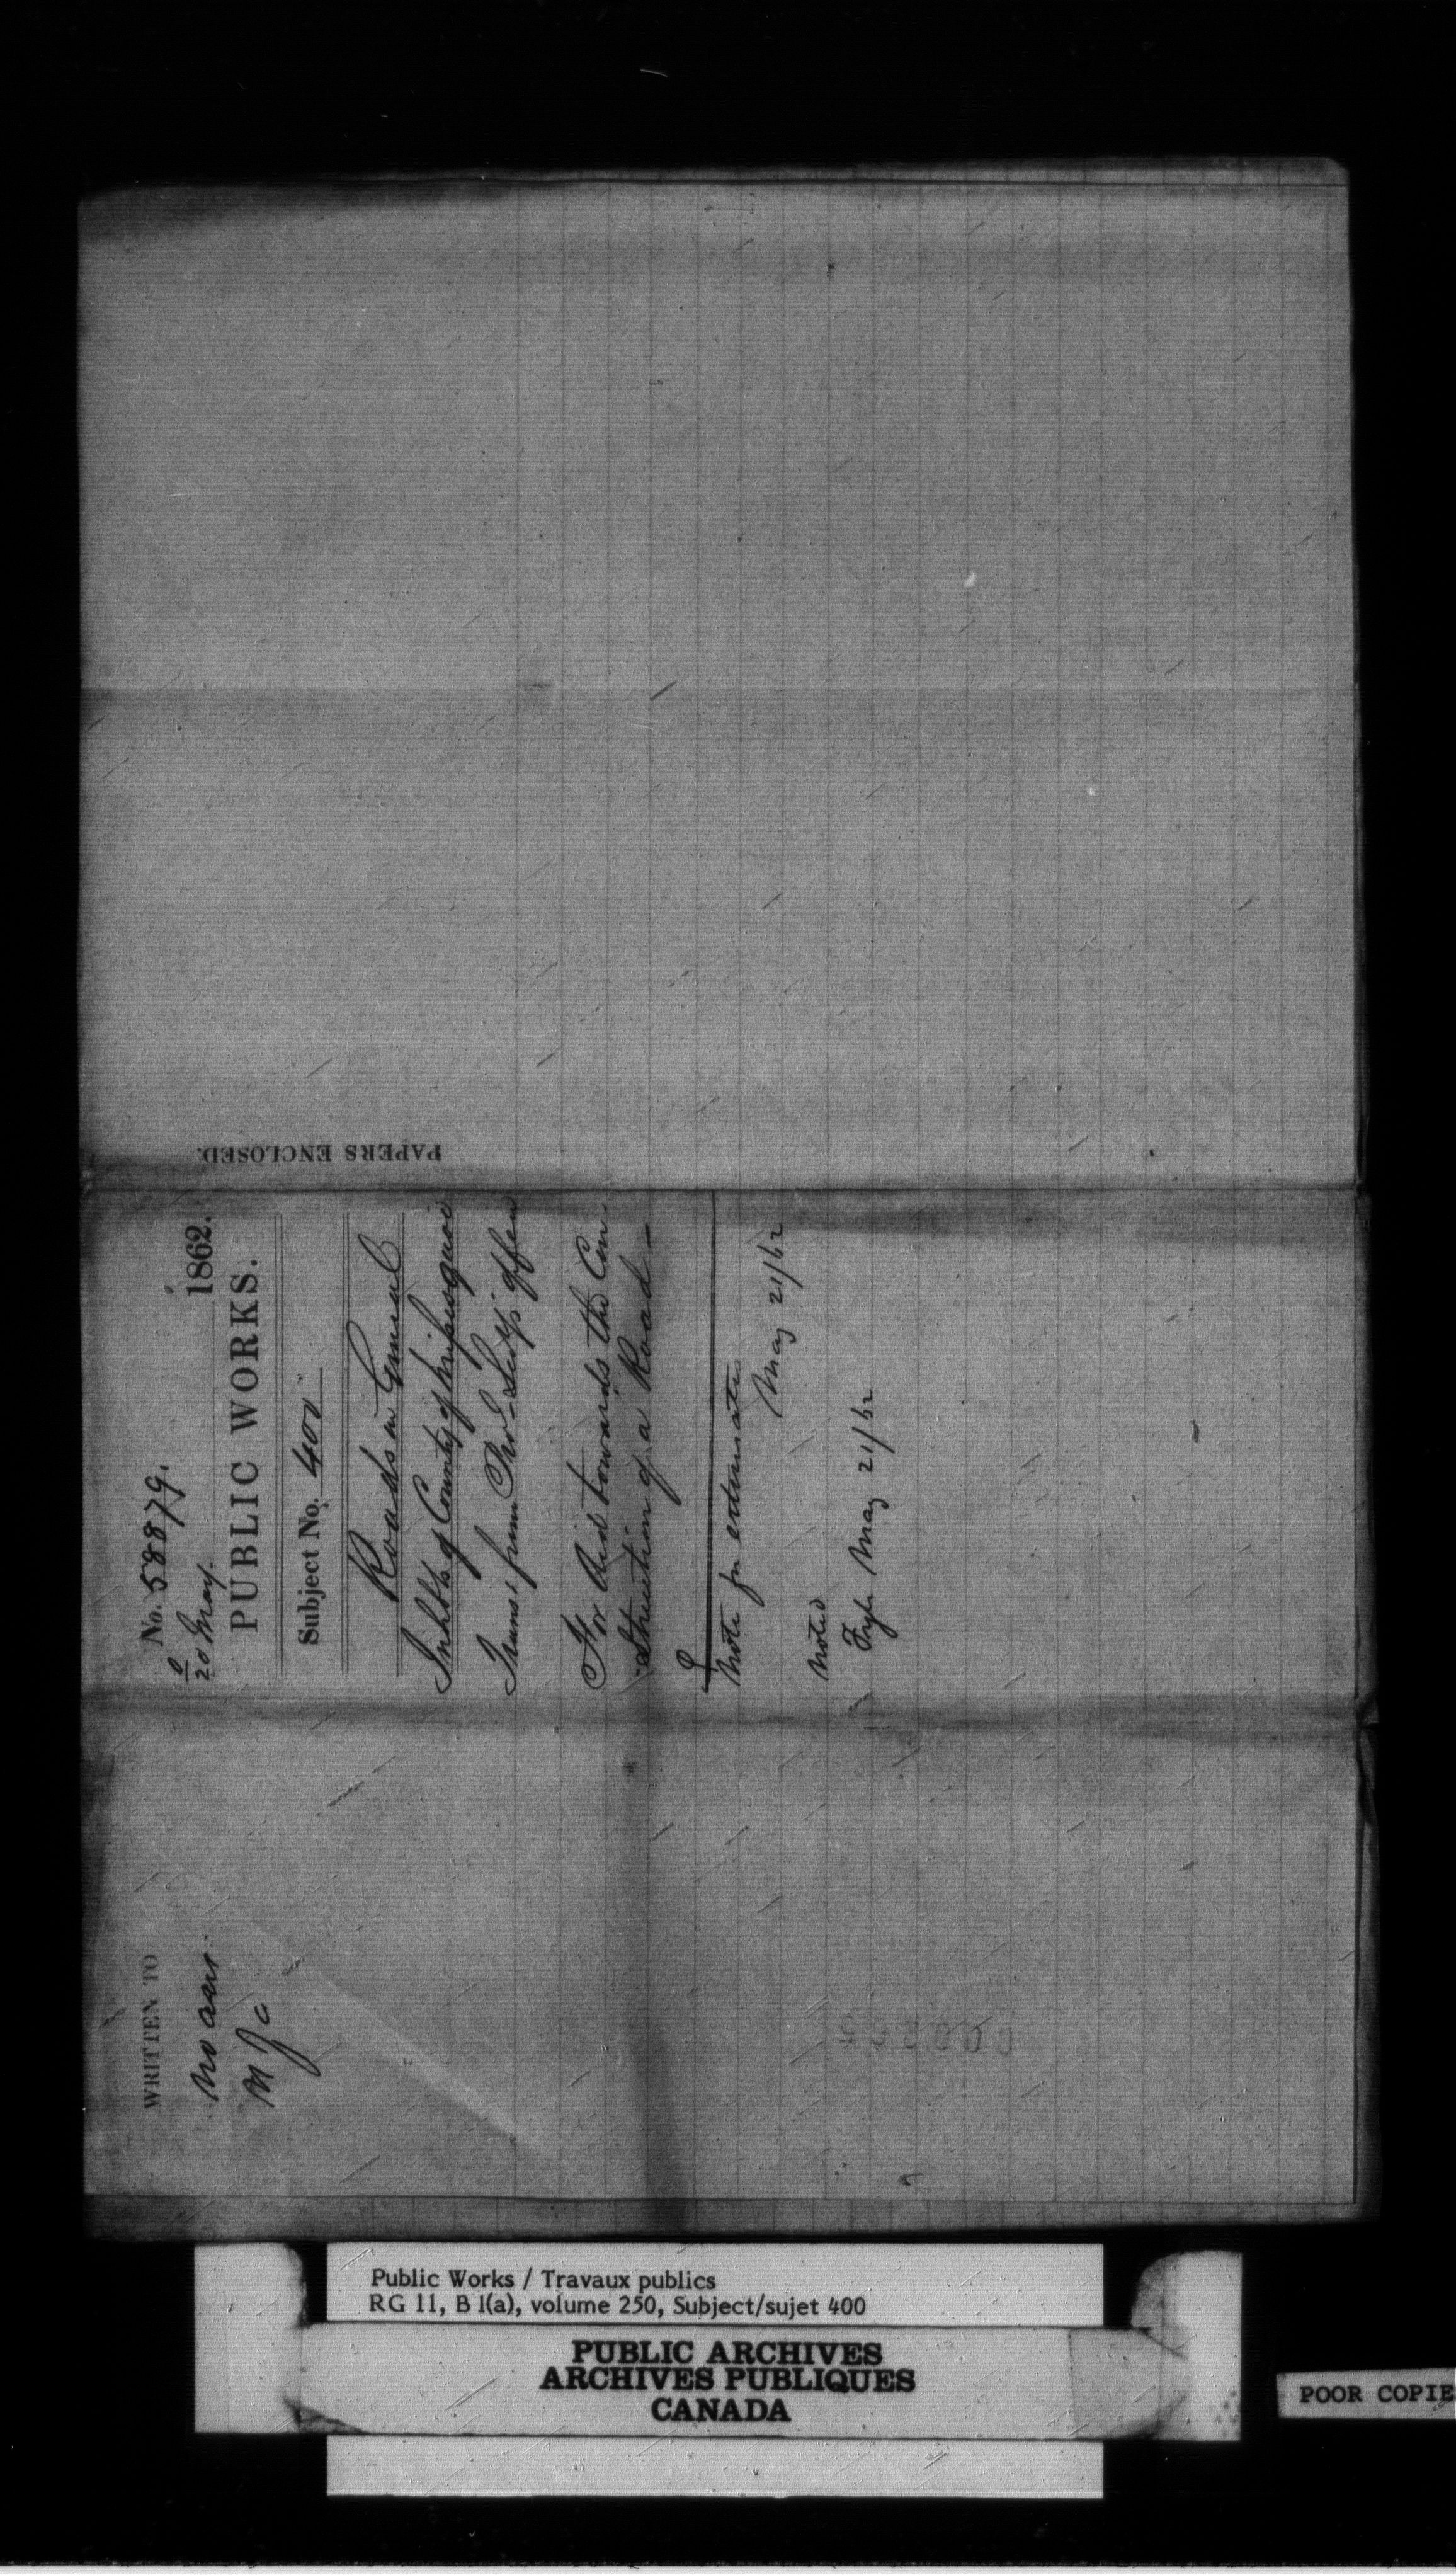 WRITTEN TO
No ansr.
No. 58879.
20 May. 1862.
PUBLIC WORKS.
Subject No. 400
Roads in General
Inhbts of County of Missisquoi
Trans. from Prov. Secy's office
For Aid towards the Con-
-struction of a Road
Note for estimates
May 21/62
Noted
May 21/62
PAPERS ENCLOSED.
Public Works / Travaux publics
RG 11, B 1(a), volume 250, Subject/sujet 400
PUBLIC ARCHIVES
ARCHIVES PUBLIQUES
CANADA
POOR COPIE